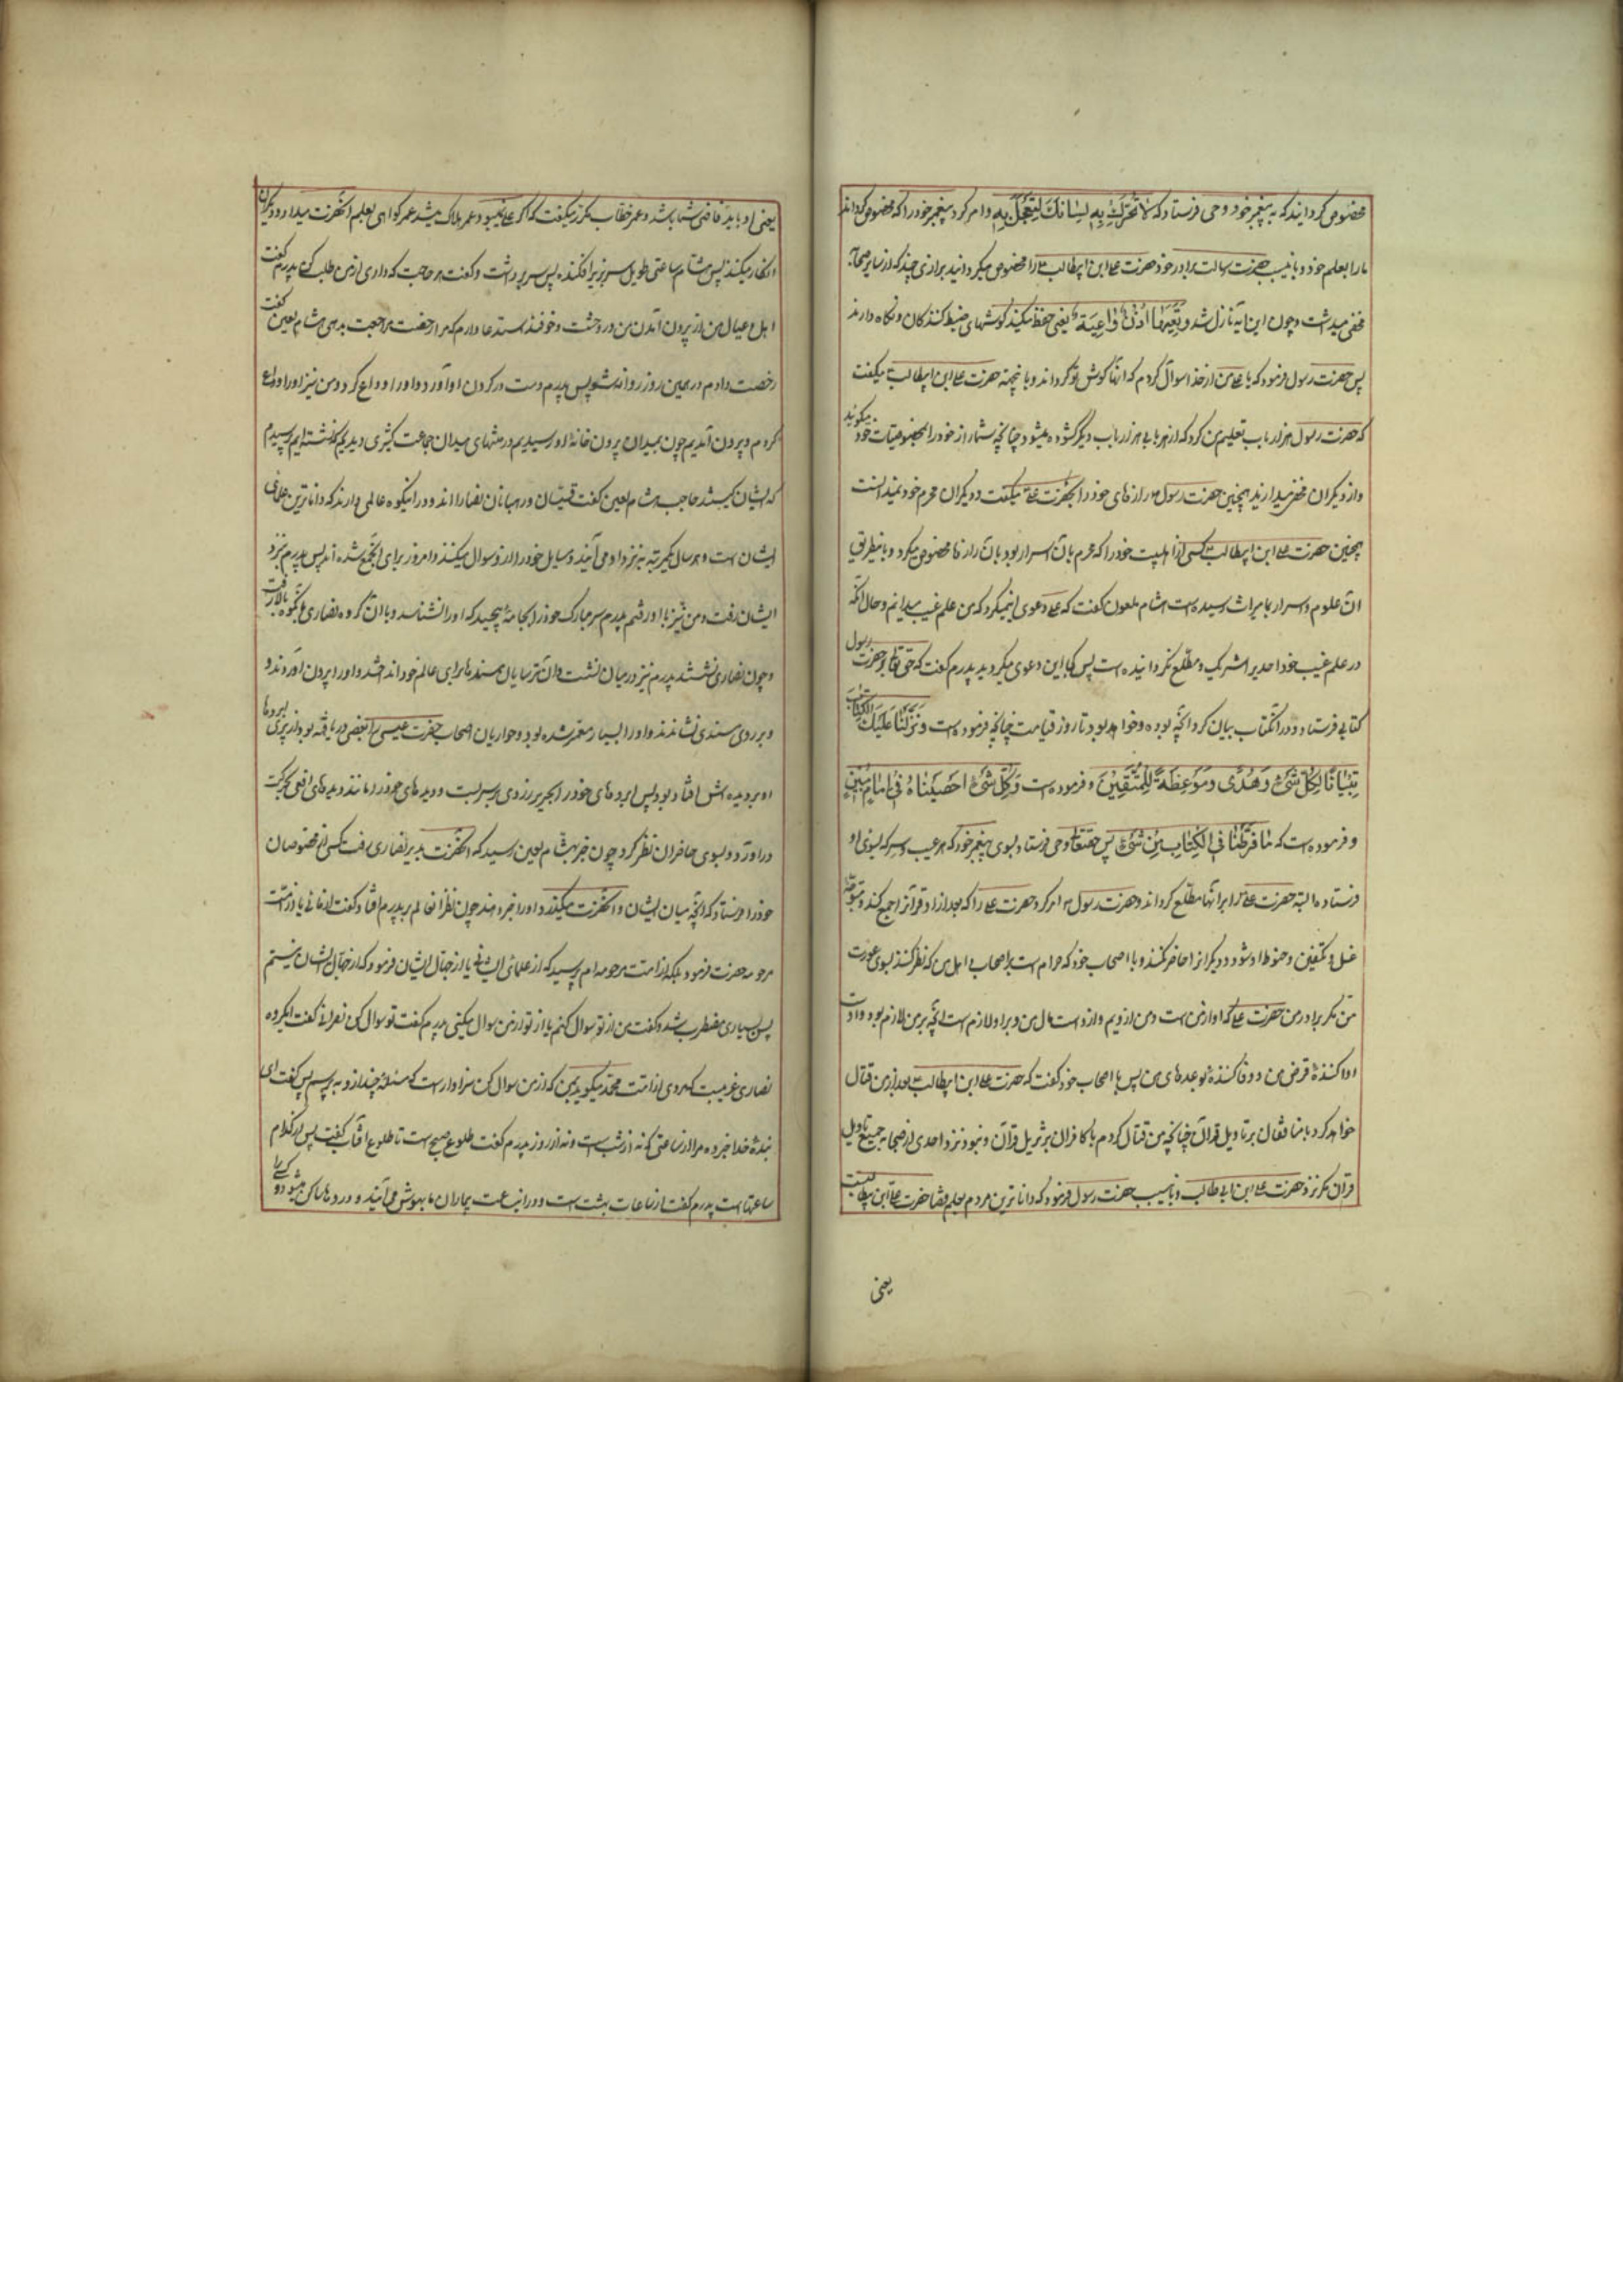 مخصوص گردانید که به پیغمبر خود وحی فرستاد که لا تُحَرِّكْ بِهِ لِسَانَكَ لِتَعْجَلَ بِهِ و امر کرد پیغمبر خود را که مخصوص گرداند
ما را بعلم خود و باین سبب حضرت رسالت برادر خود حضرت علی ابن ابیطالب را مخصوص میگردانید برازی چند که از سایر صحابه
مخفی میداشت و چون این ایه نازل شد وَتَعِيَهَا أُذُنٌ وَاعِيَةٌ یعنی حفظ میکند گوشهای ضبط کنندگان و نگاه دارند
پس حضرت رسول فرمود که یا علی من از خدا سوال کردم که انها گوش تو گرداند و باینجهة حضرت علی ابن ابیطالب میگفت
که حضرت رسول هزار باب تعلیم من کرد که از هر بابی هزار باب دیگر گشوده میشود چنانچه شما راز خود را بمخصوصان خود میگوئید
و از دیگران مخفی میدارید همچنین حضرت رسول رازهای خود را بحضرت علی میگفت و دیگران محرم خود نمیدانست
همچنین حضرت علی ابن ابیطالب کسی از اهلبیت خود را که محرم بان اسرار بود بان رازها مخصوص میگرد و باینطریق
ان علوم و اسرار بما میراث رسیده است هشام ملعون گفت که علی دعوی اینمیکرد که من علم غیب میدانم و حال آنکه
در علم غیب خدا احدیرا شریک و مطلع نگردانیده است پس کجا این دعوی میکردید پدرم گفت که حق تعالی بر حضرت رسول
کتابی فرستاد و در انکتاب بیان کرد انچه بوده و خواهد بود تا روز قیامت چنانچه فرموده است وَنَزَّلْنَا عَلَيْكَ الْكِتَابَ
تِبْيَانًا لِكُلِّ شَيْءٍ وَهُدًى وَمَوْعِظَةً لِلْمُتَّقِينَ و فرموده است وَكُلَّ شَيْءٍ أَحْصَيْنَاهُ فِي إِمَامٍ مُبِينٍ
و فرموده است که مَا فَرَّطْنَا فِي الْكِتَابِ مِنْ شَيْءٍ پس حقتعالی وحی فرستاد بسوی پیغمبر خود که هر غیب و سر که بسوی او
فرستاده البته حضرت علی را برانها مطلع گرداند و حضرت رسول امر کرد حضرت علی را که بعد از او قرانرا جمع کند و متوجه
غسل و تکفین و حنوط او شود و دیگرانرا حاضر نکند و با اصحاب خود گفت که حرام است بر اصحاب و اهل من که نظر کنند بسوی عورت
من مگر برادر من حضرت علی که او از من است و من از ویم و از اوست مال من و بر او لازم است انچه بر من لازم بود و اوست
اداکنندهٔ قرض من و وفاکنندهٔ بوعدهای من پس با اصحاب خود گفت که حضرت علی ابن ابیطالب بعد از من قتال
خواهد کرد با منافقان بر تاویل قرآن چنانچه من قتال کردم با کافران بر تنزیل قرآن و نبود نزد احدی از صحابه جمیع تاویل
قران مگر نزد حضرت علی ابن ابیطالب و باین سبب حضرت رسول فرمود که داناترین مردم بعلم قضا حضرت علی ابن ابیطالب است
یعنی
یعنی او باید قاضی شما باشد و عمر خطاب مکرر میگفت که اگر علی نمیبود عمر هلاک میشد عمر گواهی بعلم انحضرت میداد و دیگران
انکار میکنند پس هشام ساعتی طویل سر بزیر افکنده پس سر برداشت و گفت هر حاجت که داری از من طلب کن پدرم گفت
اهل و عیال من از بیرون آمدن من در وحشت و خوفند استدعا دارم که مرا رخصت مراجعت بدهی هشام لعین گفت
رخصت دادم در همین روز روانه شو پس پدرم دست در گردن او آورد و او را وداع کرد و من نیز او را وداع
کردم و بیرون آمدیم چون بمیدان بیرون خانهٔ او رسیدیم در منتهای میدان جماعت کثیری دیدیم که نشسته‌اند پرسیدم
که ایشان کیستند حاجب هشام لعین گفت قسیسان و رهبانان نصارااند و در اینکوه عالمی دارند که داناترین علمای
ایشان است و هر سال یکمرتبه به نزد او می آیند و مسایل خود را از او سوال میکنند و امروز برای آن جمع شده‌اند پس پدرم بنزد
ایشان رفت و من نیز با او رفتم پدرم سر مبارک خود را بجامهٔ پیچید که او را نشناسند و با آن گروه نصاری بآنکوه بالا رفت
و چون نصاری نشستند پدرم نیز در میان نشست و آن ترسایان مسندها برای عالم خود انداختند و او را بیرون آوردند و
و بر روی مسندی نشاندند و او را بسیار معمر شده بود و حواریان اصحاب حضرت عیسی را بعضی دریافته بود و از پیری ابروها
او بر دیده اش افتاده بود پس ابروهای خود را بحریر زردی بر سر بست و دیدهای خود را مانند دیدهای افعی بحرکت
دراورد و بسوی حاضران نظر کرد چون خبر بهشام لعین رسید که انحضرت بدیر نصاری رفت کسی از مخصوصان
خود را فرستاد که انچه میان ایشان و انحضرت میگذرد او را خبر دهند چون نظر ان عالم بر پدرم افتاد گفت از مائی یا از امت
مرحومه حضرت فرمود بلکه از امت مرحومه ام پرسید که از علمای ایشانی یا از جهال ایشان فرمود که از جهال ایشان نیستم
پس بسیاری مضطرب شد و گفت من از تو سوال کنم یا از تو از من سوال میکنی پدرم گفت تو سوال کن نصرانی گفت ایگروه
نصاری غریبست که مردی از امت محمد میگوید بمن که از من سوال کن سزاوار است که مسئلهٔ چند از او بپرسم پس گفت ای
بندهٔ خدا خبر ده مرا از ساعتی که نه از شب است و نه از روز پدرم گفت طلوع صبح است تا طلوع افتاب گفت پس از کدام
ساعتهاست پدرم گفت از ساعات بهشت است و در اینساعت بیماران ما بهوش می آیند و دردها ساکن میشود و کسی را